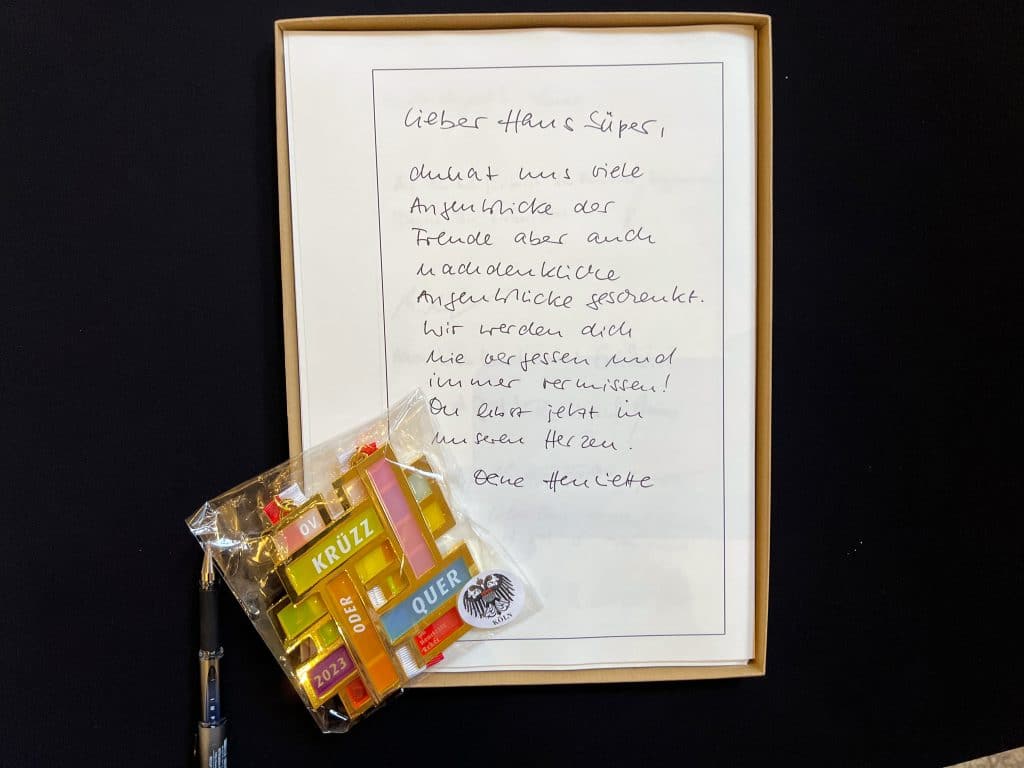 Lieber Hans Süper,
du hat uns viele
Augenblicke der
Freude aber auch
nachdenkliche
Augenblicke geschenkt.
Wir werden dich
nie vergessen und
immer vermissen!
Du lebst jetzt in
unseren Herzen.
Deine Henriette
OV
KRÜZZ
ODER
QUER
2023
KÖLN